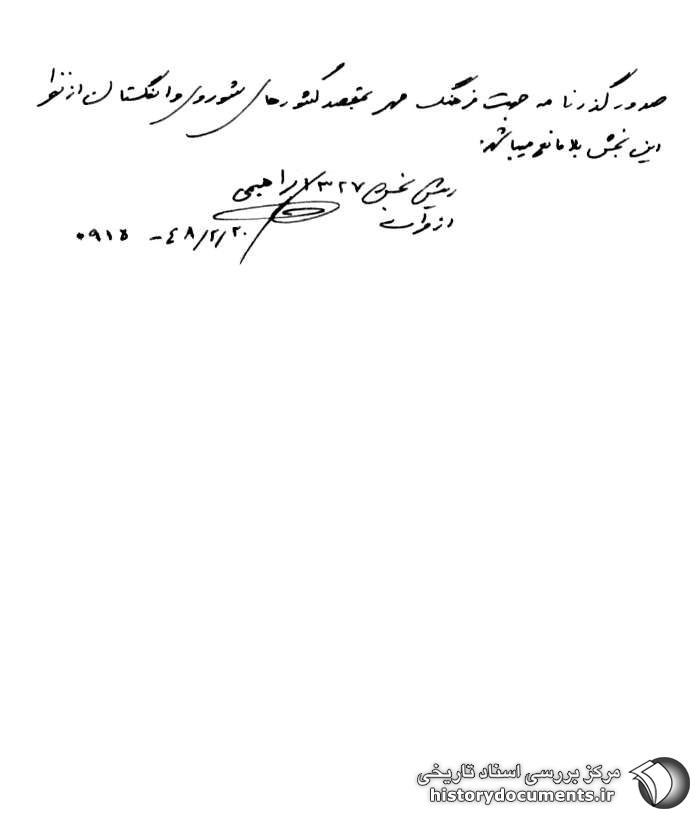 صدور گذرنامه جهت فرهنگ مهر بمقصد کشورهای شوروی و انگلستان از نظر
این بخش بلامانع میباشد.
رئیس بخش ۳۲۷ راحیمی
از طرف
۴۸/۲/۲۰ – ۰۹۱۵
مرکز بررسی اسناد تاریخی
historydocuments.ir